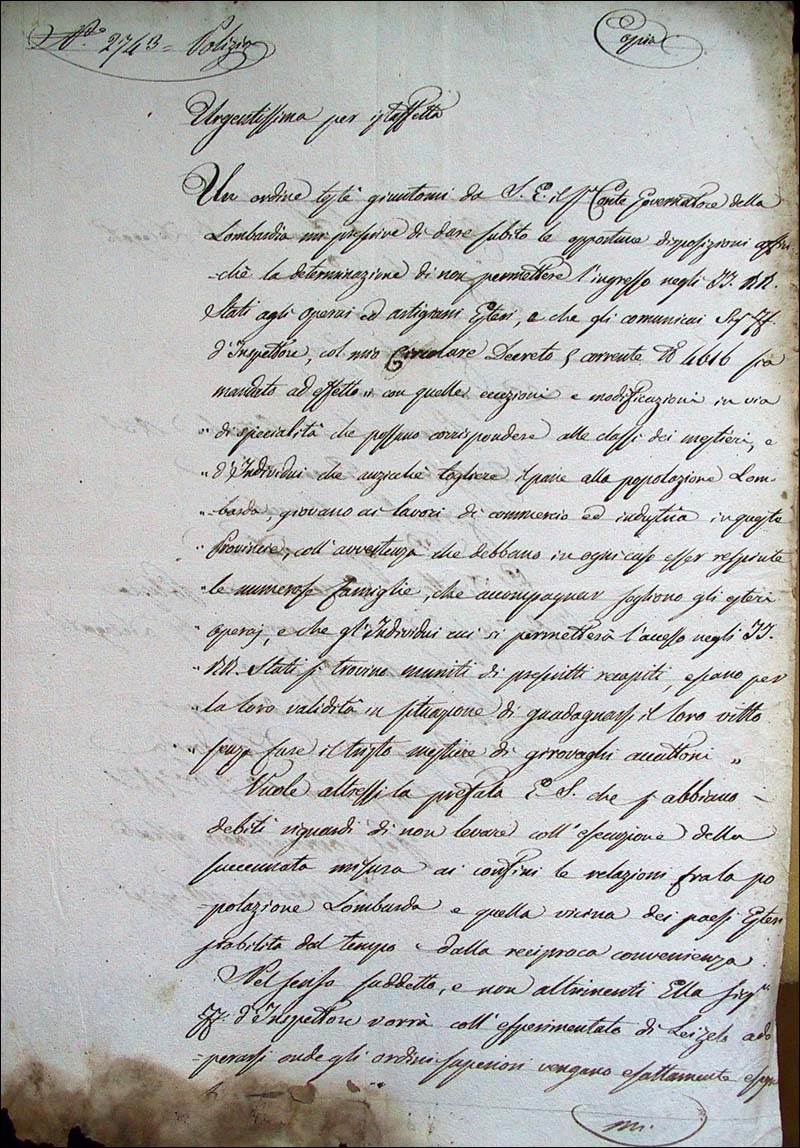 N.º 2743 = Polizia
Copia
Urgentissima per istaffetta
Un ordine testè giuntomi da S. E. il Sr Conte Governatore della
Lombardia mi prescrive di dare subito le opportune disposizioni affin-
-chè la determinazione di non permettere l'ingresso negli II. RR.
Stati agli operai ed artigiani Esteri, e che gli comunicai Sigr ff.
d'Inspettore, col mio Circolare Decreto 5 corrente No 4616 sia
mandato ad effetto „ con quelle eccezioni e modificazioni in via
„ di specialità che possano corrispondere alle classi dei mestieri, e
„ d'Individui che anzichè togliere il pane alla popolazione Lom-
„ -barda, giovano ai lavori di commercio ed industria in queste
„ Provincie, coll'avvertenza che debbano in ogni caso esser respinte
„ le numerose famiglie, che accompagnar sogliono gli esteri
operaj, e che gl'Individui cui si permetterà l'accesso negli II.
„ RR. Stati si trovino muniti di prescritti recapiti, e siano per
„ la loro validità in situazione di guadagnarsi il loro vitto
„ senza fare il tristo mestiere di girovaghi accattoni „
Vuole altresì la prefata E. S. che si abbiano
debiti riguardi di non levare coll'esecuzione della
succennata misura ai confini le relazioni fra la po
-polazione Lombarda e quella vicina dei paesi Esteri
stabilita dal tempo e dalla reciproca convenienza
Nel senso suddetto, e non altrimenti Ella Sigr
ff. d'Inspettore vorrà coll'esperimentato di Lei zelo ado
-perarsi onde gli ordini superiori vengano esattamente